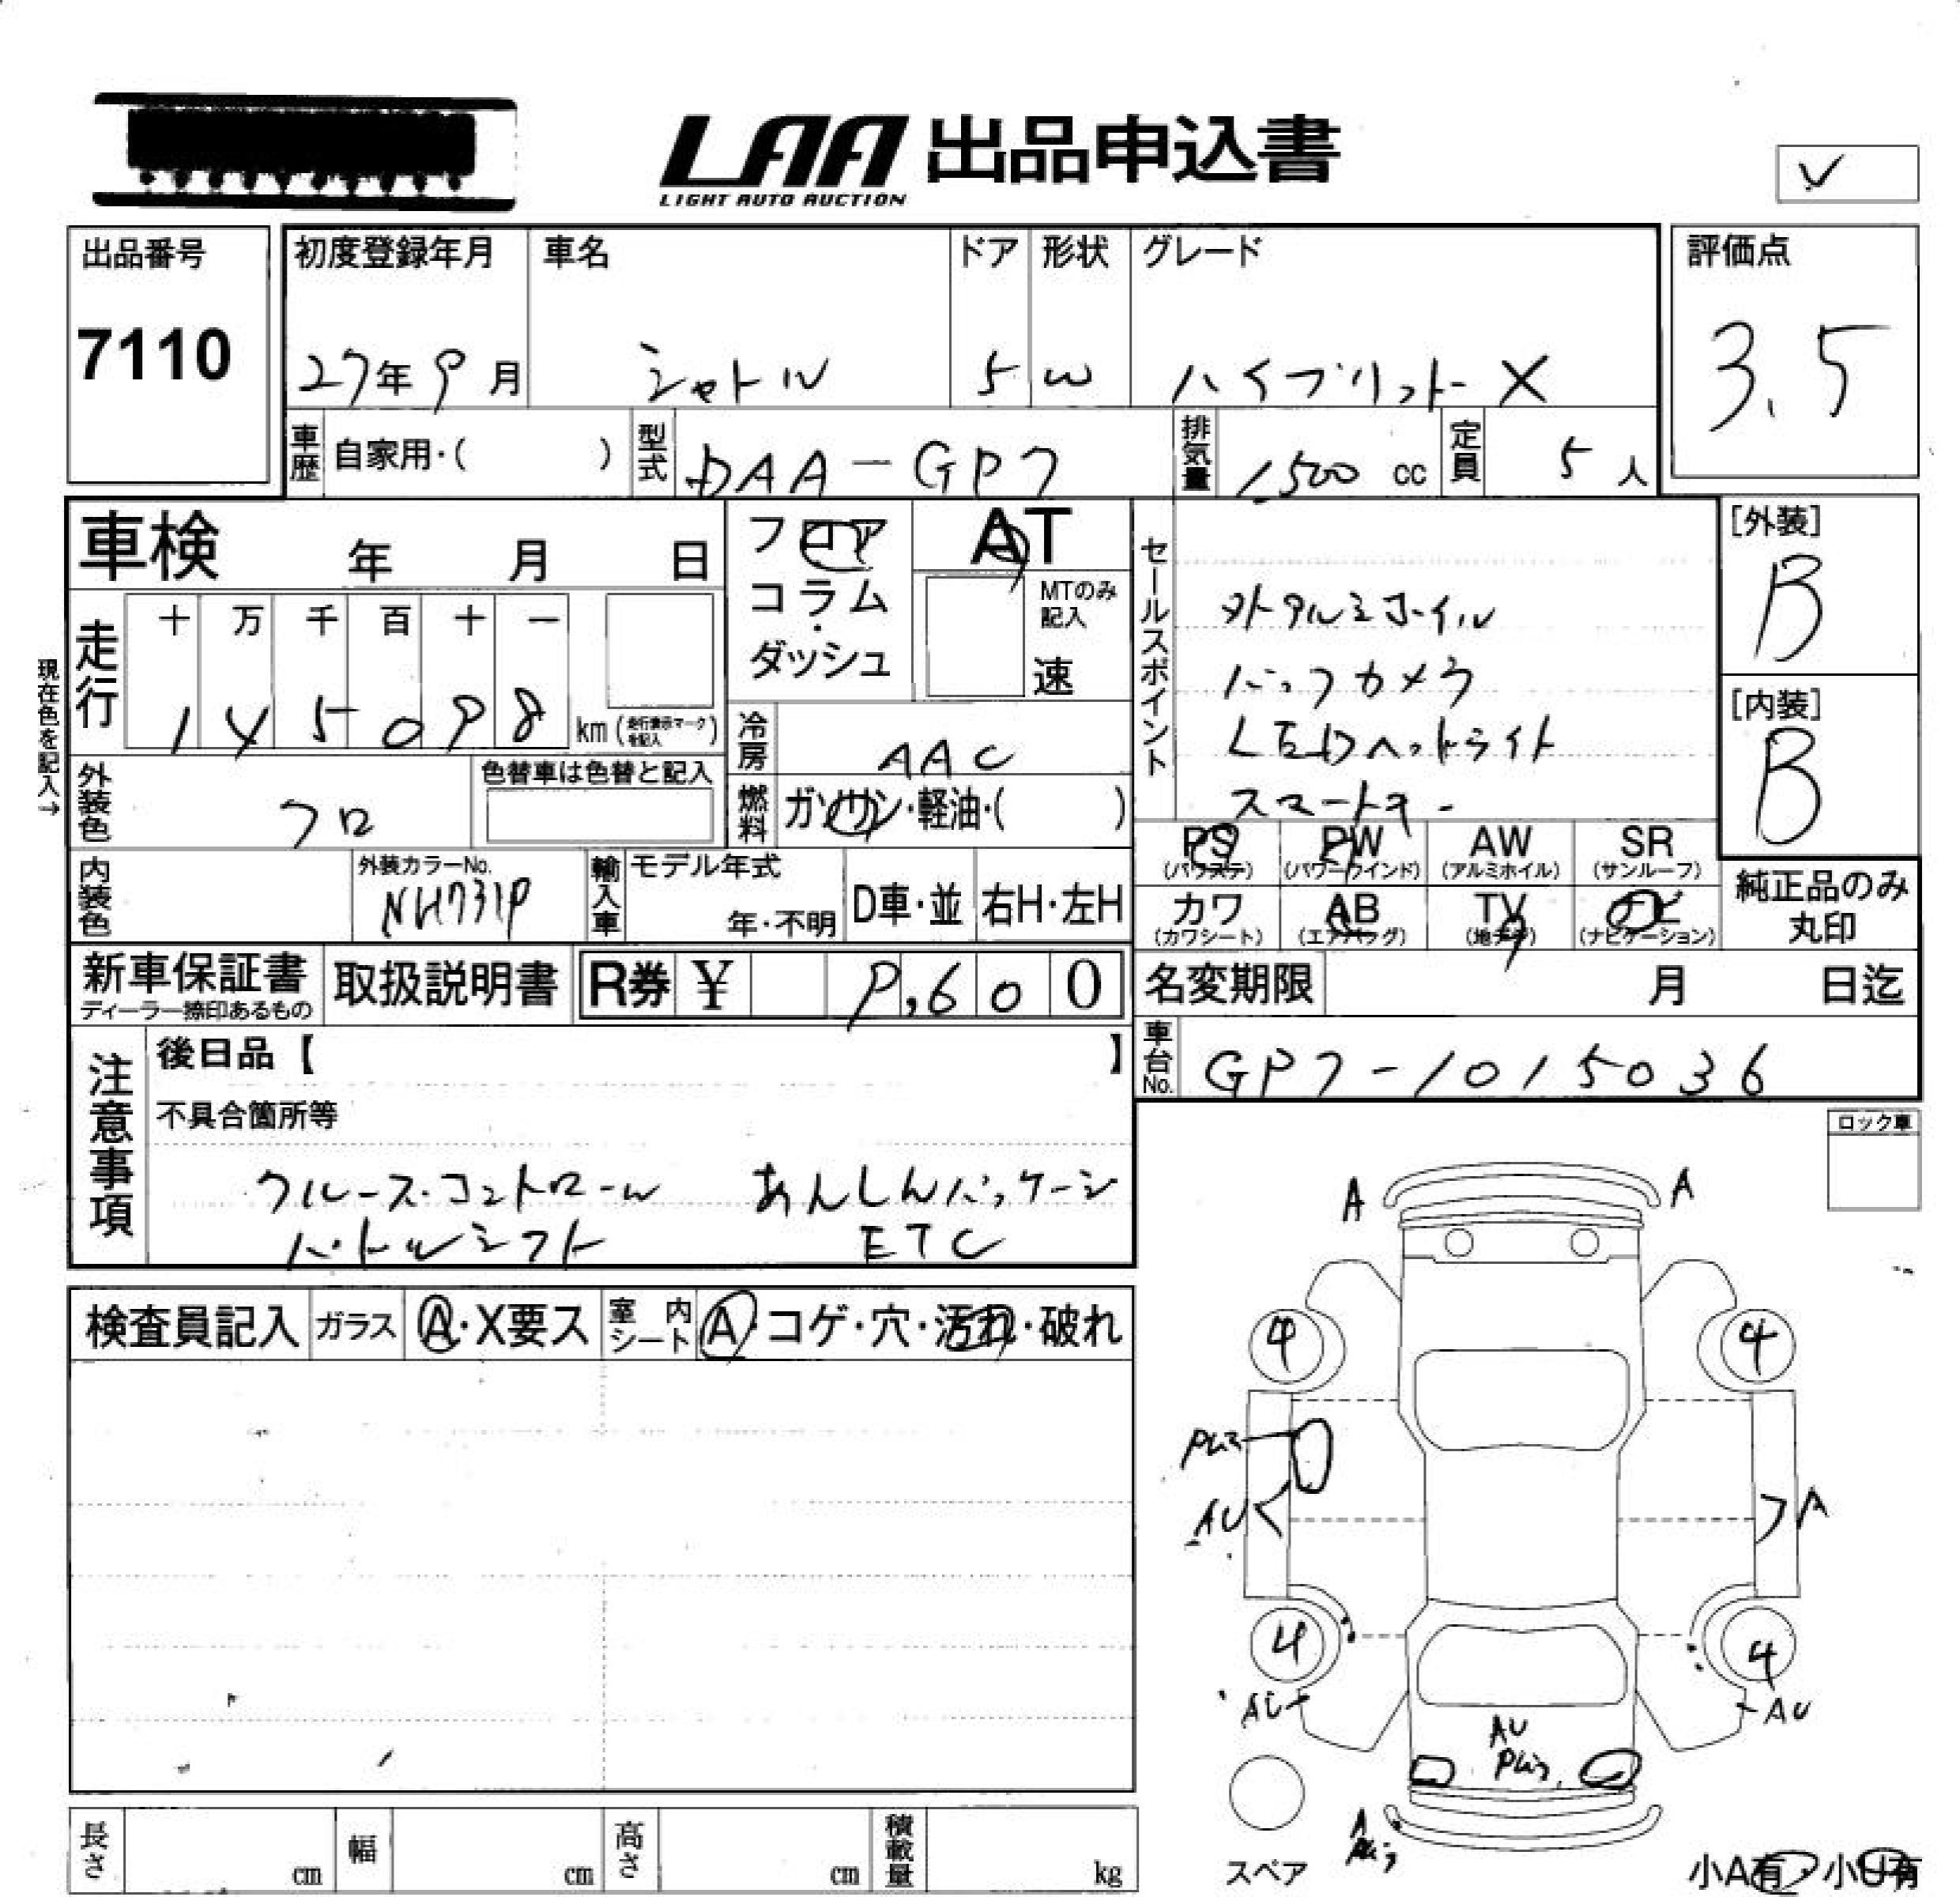 LAA 出品申込書
LIGHT AUTO AUCTION
出品番号
7110
初度登録年月
27年9月
車名
シャトル
ドア
5
形状
W
グレード
ハイブリット X
評価点
3.5
車歴 自家用・( )
型式 DAA-GP7
排気量 1500 cc
定員 5 人
車検 年 月 日
フロア
コラム
・
ダッシュ
AT
MTのみ
記入
速
セールスポイント
外 アルミホイル
バックカメラ
LEDヘットライト
スマートキー
[外装]
B
[内装]
B
現在色を記入→
走行 十 万 千 百 十 一
1 4 5 0 9 8 km (走行表示マークを記入)
冷房 AAC
外装色 クロ
色替車は色替と記入
燃料 ガソリン・軽油・( )
PS (パワステ)
PW (パワーウインド)
AW (アルミホイル)
SR (サンルーフ)
カワ (カワシート)
AB (エアバッグ)
TV (地デジ)
ナビ (ナビゲーション)
純正品のみ
丸印
内装色
外装カラーNo.
NH731P
輸入車
モデル年式
年・不明
D車・並
右H・左H
新車保証書
ディーラー捺印あるもの
取扱説明書
R券 ¥ 9,600
名変期限 月 日迄
車台No. GP7-1015036
注意事項
後日品【 】
不具合箇所等
クルースコントロール あんしんパッケージ
パトルシフト ETC
ロック車
検査員記入 ガラス A・X要ス
室内シート A・コゲ・穴・汚れ・破れ
A A
4 4
AU A
4 4
AU AU
AU
A
スペア
小A有・小U有
長さ cm
幅 cm
高さ cm
積載量 kg